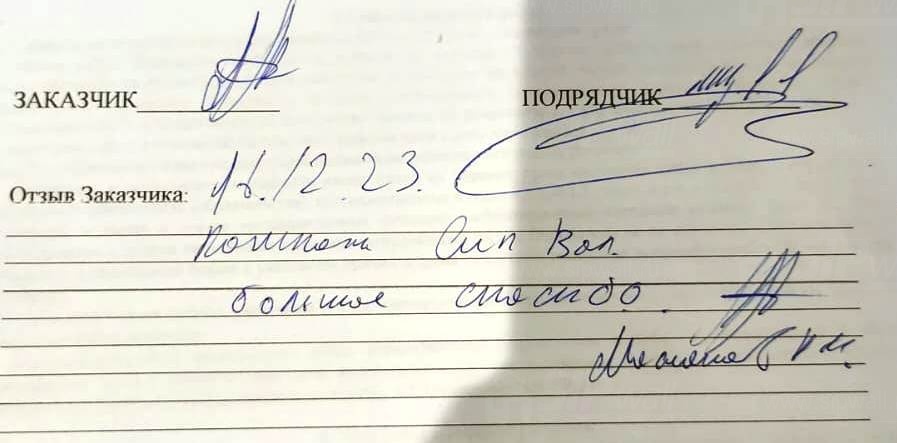 ЗАКАЗЧИК ПОДРЯДЧИК
Отзыв Заказчика: 16.12.23.
Сип Вол.
большое спасибо.